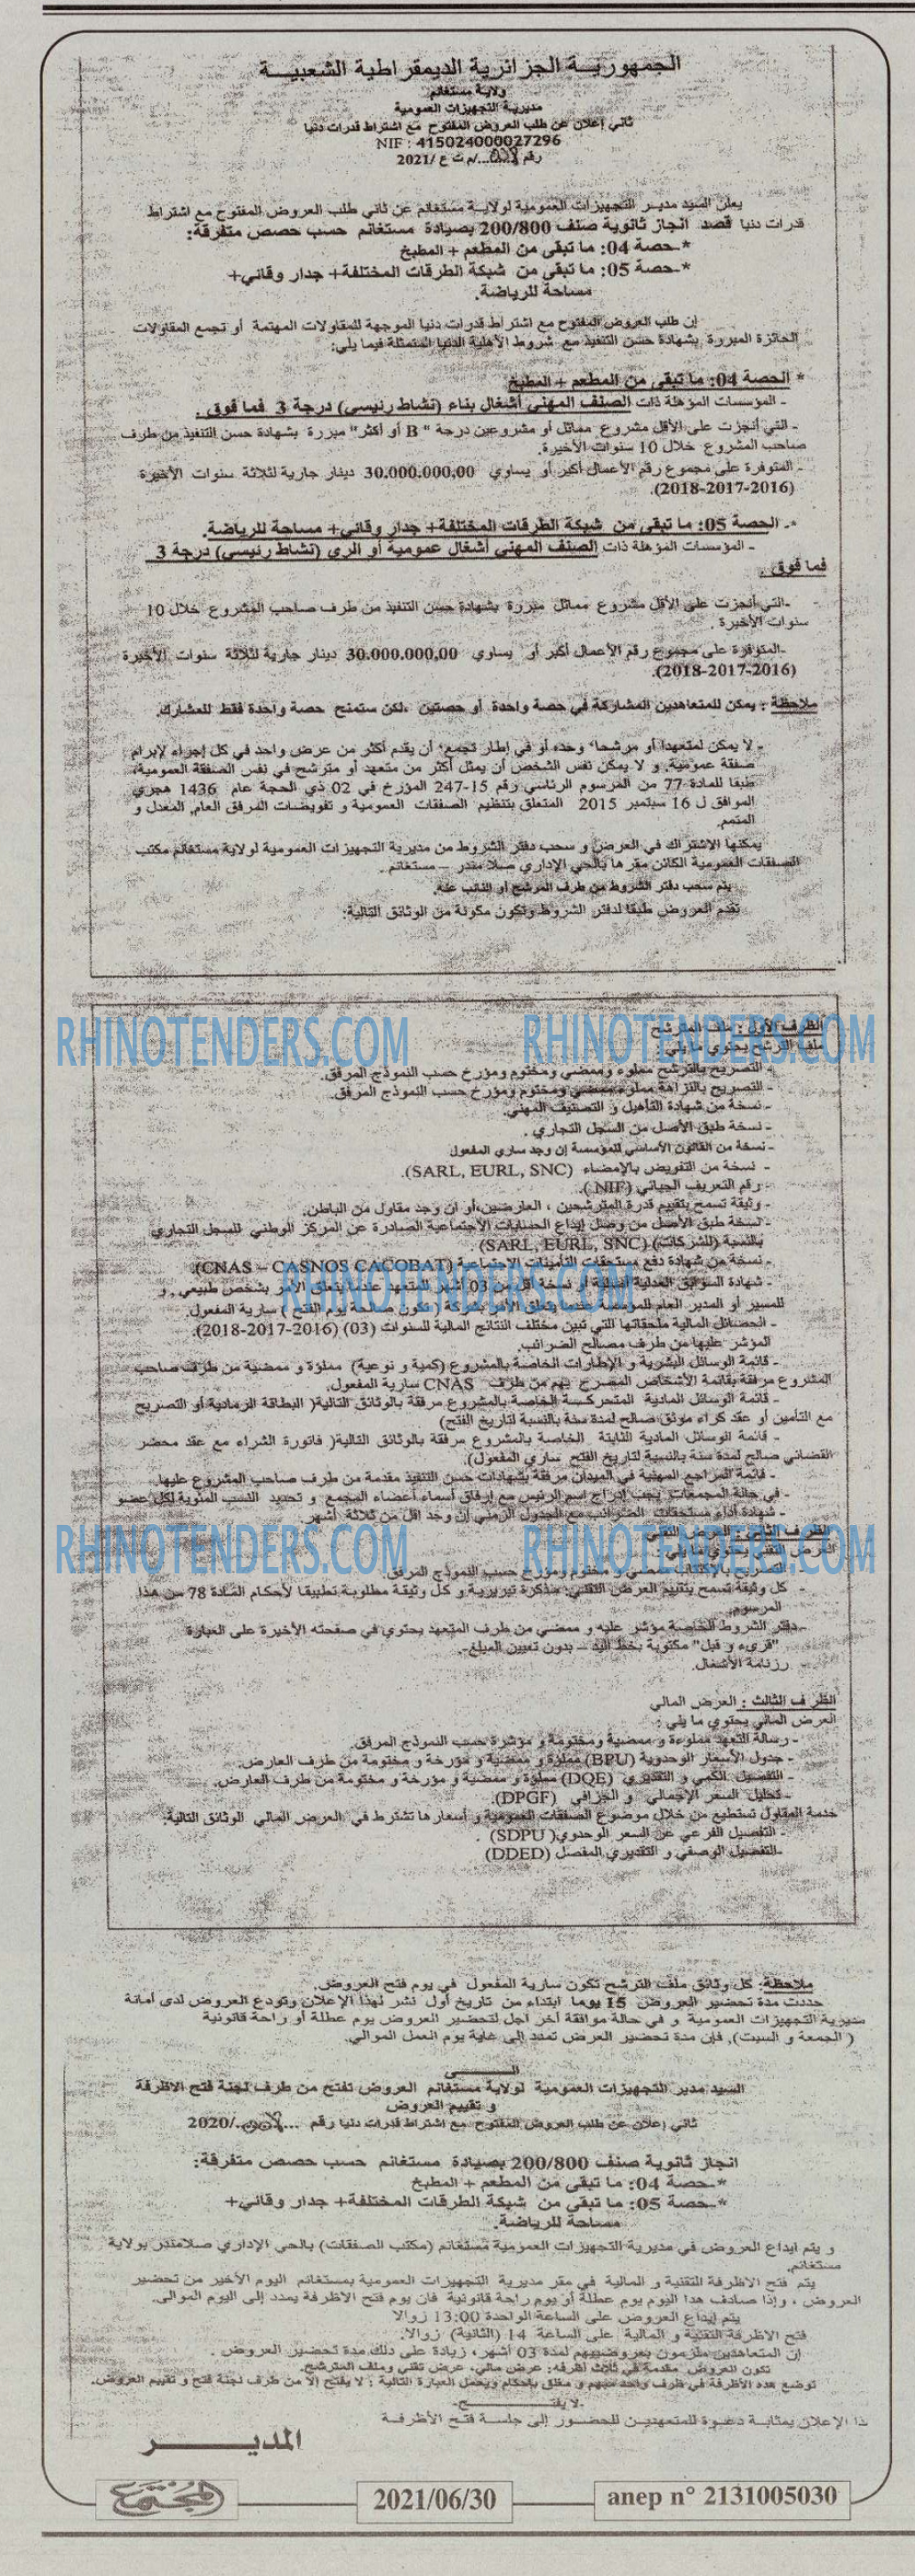 الجمهوريــة الجزائرية الديمقراطية الشعبيــة
ولاية مستغانم
مديرية التجهيزات العمومية
ثاني إعلان عن طلب العروض المفتوح مع اشتراط قدرات دنيا
NIF : 415024000027296
رقم .../م ت ع /2021
يعلن السيد مدير التجهيزات العمومية لولاية مستغانم عن ثاني طلب العروض المفتوح مع اشتراط
قدرات دنيا قصد انجاز ثانوية صنف 200/800 بصيادة مستغانم حسب حصص متفرقة:
*-حصة 04: ما تبقى من المطعم + المطبخ
*-حصة 05: ما تبقى من شبكة الطرقات المختلفة+ جدار وقائي+
مساحة للرياضة.
إن طلب العروض المفتوح مع اشتراط قدرات دنيا الموجهة للمقاولات المهتمة أو تجمع المقاولات
الحائزة المبررة بشهادة حسن التنفيذ مع شروط الأهلية الدنيا المتمثلة فيما يلي:
* الحصة 04: ما تبقى من المطعم + المطبخ
- المؤسسات المؤهلة ذات الصنف المهني أشغال بناء (نشاط رئيسي) درجة 3 فما فوق .
- التي أنجزت على الأقل مشروع مماثل أو مشروعين درجة " B أو أكثر" مبررة بشهادة حسن التنفيذ من طرف
صاحب المشروع خلال 10 سنوات الأخيرة.
- المتوفرة على مجموع رقم الأعمال أكبر أو يساوي 30.000.000,00 دينار جارية لثلاثة سنوات الأخيرة
(2016-2017-2018).
*- الحصة 05: ما تبقى من شبكة الطرقات المختلفة+ جدار وقائي+ مساحة للرياضة.
- المؤسسات المؤهلة ذات الصنف المهني أشغال عمومية أو الري (نشاط رئيسي) درجة 3
فما فوق .
-التي أنجزت على الأقل مشروع مماثل مبررة بشهادة حسن التنفيذ من طرف صاحب المشروع خلال 10
سنوات الأخيرة .
-المتوفرة على مجموع رقم الأعمال أكبر أو يساوي 30.000.000,00 دينار جارية لثلاثة سنوات الأخيرة
(2016-2017-2018).
ملاحظة : يمكن للمتعاهدين المشاركة في حصة واحدة أو حصتين ،لكن ستمنح حصة واحدة فقط للمشارك.
- لا يمكن لمتعهدا أو مرشحا، وحده أو في إطار تجمع، أن يقدم أكثر من عرض واحد في كل إجراء لإبرام
صفقة عمومية. و لا يمكن نفس الشخص أن يمثل أكثر من متعهد أو مترشح في نفس الصفقة العمومية،
طبقا للمادة 77 من المرسوم الرئاسي رقم 15-247 المؤرخ في 02 ذي الحجة عام 1436 هجري
الموافق ل 16 سبتمبر 2015 المتعلق بتنظيم الصفقات العمومية و تفويضات المرفق العام, المعدل و
المتمم.
يمكنها الاشتراك في العرض و سحب دفتر الشروط من مديرية التجهيزات العمومية لولاية مستغانم مكتب
الصفقات العمومية الكائن مقرها بالحي الإداري صلامندر – مستغانم .
يتم سحب دفتر الشروط من طرف المرشح أو النائب عنه.
تقدم العروض طبقا لدفتر الشروط وتكون مكونة من الوثائق التالية:
الظرف الأول : ملف المترشح
ملف الترشح يحتوي ما يلي :
RHINOTENDERS.COM RHINOTENDERS.COM
- التصريح بالترشح مملوء وممضي ومختوم ومؤرخ حسب النموذج المرفق.
- التصريح بالنزاهة مملوء ممضي ومختوم ومؤرخ حسب النموذج المرفق.
- نسخة من شهادة التأهيل و التصنيف المهني.
- نسخة طبق الأصل من السجل التجاري .
- نسخة من القانون الأساسي للمؤسسة إن وجد ساري المفعول
- نسخة من التفويض بالإمضاء (SARL, EURL, SNC).
- رقم التعريف الجبائي (NIF).
- وثيقة تسمح بتقييم قدرة المترشحين ، العارضين،أو ان وجد مقاول من الباطن.
- نسخة طبق الأصل من وصل إيداع الحسابات الاجتماعية الصادرة عن المركز الوطني للسجل التجاري
بالنسبة (للشركات) (SARL, EURL, SNC) .
- نسخة من شهادة دفع مستحقات التأمينات الاجتماعية (CNAS – CASNOS CACOBAT).
RHINOTENDERS.COM
- شهادة السوابق العدلية أصلية أو نسخة أقل من 03 أشهر للمتعهد عندما يتعلق الأمر بشخص طبيعي , و
للمسير أو المدير العام للمؤسسة عندما يتعلق الأمر بشركة ( تكون صالحة يوم الفتح ) سارية المفعول.
- الحصائل المالية ملحقاتها التي تبين مختلف النتائج المالية للسنوات (03) (2016-2017-2018).
المؤشر عليها من طرف مصالح الضرائب.
- قائمة الوسائل البشرية و الإطارات الخاصة بالمشروع (كمية و نوعية) مملؤة و ممضية من طرف صاحب
المشروع مرفقة بقائمة الأشخاص المصرح بهم من طرف CNAS سارية المفعول.
- قائمة الوسائل المادية المتحركة الخاصة بالمشروع مرفقة بالوثائق التالية( البطاقة الرمادية أو التصريح
مع التأمين أو عقد كراء موثق صالح لمدة سنة بالنسبة لتاريخ الفتح)
- قائمة الوسائل المادية الثابتة الخاصة بالمشروع مرفقة بالوثائق التالية( فاتورة الشراء مع عقد محضر
القضائي صالح لمدة سنة بالنسبة لتاريخ الفتح ساري المفعول).
- قائمة المراجع المهنية في الميدان مرفقة بشهادات حسن التنفيذ مقدمة من طرف صاحب المشروع عليها.
- في حالة المجمعات يجب إدراج اسم الرئيس مع إرفاق أسماء أعضاء المجمع و تحديد النسب المئوية لكل عضو
- شهادة أداء مستحقات الضرائب مع الجدول الزمني إن وجد اقل من ثلاثة أشهر
الظرف الثاني : العرض التقني
العرض التقني يحتوي ما يلي :
RHINOTENDERS.COM RHINOTENDERS.COM
- التصريح بالاكتتاب ممضي و مختوم ومؤرخ حسب النموذج المرفق.
- كل وثيقة تسمح بتقييم العرض التقني: مذكرة تبريرية و كل وثيقة مطلوبة تطبيقا لأحكام المادة 78 من هذا
المرسوم.
- دفتر الشروط الخاصة مؤشر عليه و ممضي من طرف المتعهد يحتوي في صفحته الأخيرة على العبارة
"قرىء و قبل" مكتوبة بخط اليد – بدون تعيين المبلغ-.
- رزنامة الأشغال.
الظرف الثالث : العرض المالي
العرض المالي يحتوي ما يلي :
- رسالة التعهد مملوءة و ممضية ومختومة و مؤشرة حسب النموذج المرفق.
- جدول الأسعار الوحدوية (BPU) مملؤة و ممضية و مؤرخة و مختومة من طرف العارض.
- التفصيل الكمي و التقديري (DQE) مملؤة و ممضية و مؤرخة و مختومة من طرف العارض.
- تحليل السعر الإجمالي و الجزافي (DPGF).
خدمة المقاول تستطيع من خلال موضوع الصفقات العمومية و أسعارها تشترط في العرض المالي الوثائق التالية:
- التفصيل الفرعي عن السعر الوحدوي( SDPU) .
-التفصيل الوصفي و التقديري المفصل (DDED)
ملاحظة: كل وثائق ملف الترشح تكون سارية المفعول في يوم فتح العروض.
حددت مدة تحضير العروض 15 يوما ابتداء من تاريخ أول نشر لهذا الإعلان وتودع العروض لدى أمانة
مديرية التجهيزات العمومية و في حالة موافقة أخر اجل لتحضير العروض يوم عطلة أو راحة قانونية
( الجمعة و السبت), فإن مدة تحضير العرض تمدد إلى غاية يوم العمل الموالي.
الــــــى
السيد مدير التجهيزات العمومية لولاية مستغانم العروض تفتح من طرف لجنة فتح الاظرفة
و تقييم العروض
ثاني إعلان عن طلب العروض المفتوح مع اشتراط قدرات دنيا رقم .../2020
انجاز ثانوية صنف 200/800 بصيادة مستغانم حسب حصص متفرقة:
*-حصة 04: ما تبقى من المطعم + المطبخ
*-حصة 05: ما تبقى من شبكة الطرقات المختلفة+ جدار وقائي+
مساحة للرياضة.
و يتم ايداع العروض في مديرية التجهيزات العمومية مستغانم (مكتب الصفقات) بالحي الإداري صلامندر بولاية
مستغانم.
يتم فتح الاظرفة التقنية و المالية في مقر مديرية التجهيزات العمومية بمستغانم اليوم الأخير من تحضير
العروض ، وإذا صادف هدا اليوم يوم عطلة أو يوم راحة قانونية فان يوم فتح الاظرفة يمدد إلى اليوم الموالي.
يتم إيداع العروض على الساعة الواحدة 13:00 زوالا
فتح الاظرفة التقنية و المالية على الساعة 14 (الثانية) زوالا.
إن المتعاهدين ملزمون بعروضهم لمدة 03 أشهر، زيادة على ذلك مدة تحضير العروض .
تكون العروض مقدمة في ثلاث أظرفه: عرض مالي، عرض تقني وملف المترشح.
توضع هده الأظرفة في ظرف واحد مبهم و مغلق بإحكام ويحمل العبارة التالية : لا يفتح إلا من طرف لجنة فتح و تقييم العروض.
-لا يفتــــــح-
ذا الإعلان بمثابة دعوة للمتعهدين للحضور إلى جلسة فتح الأظرفة
المديــــــر
المجتمع
2021/06/30
anep n° 2131005030